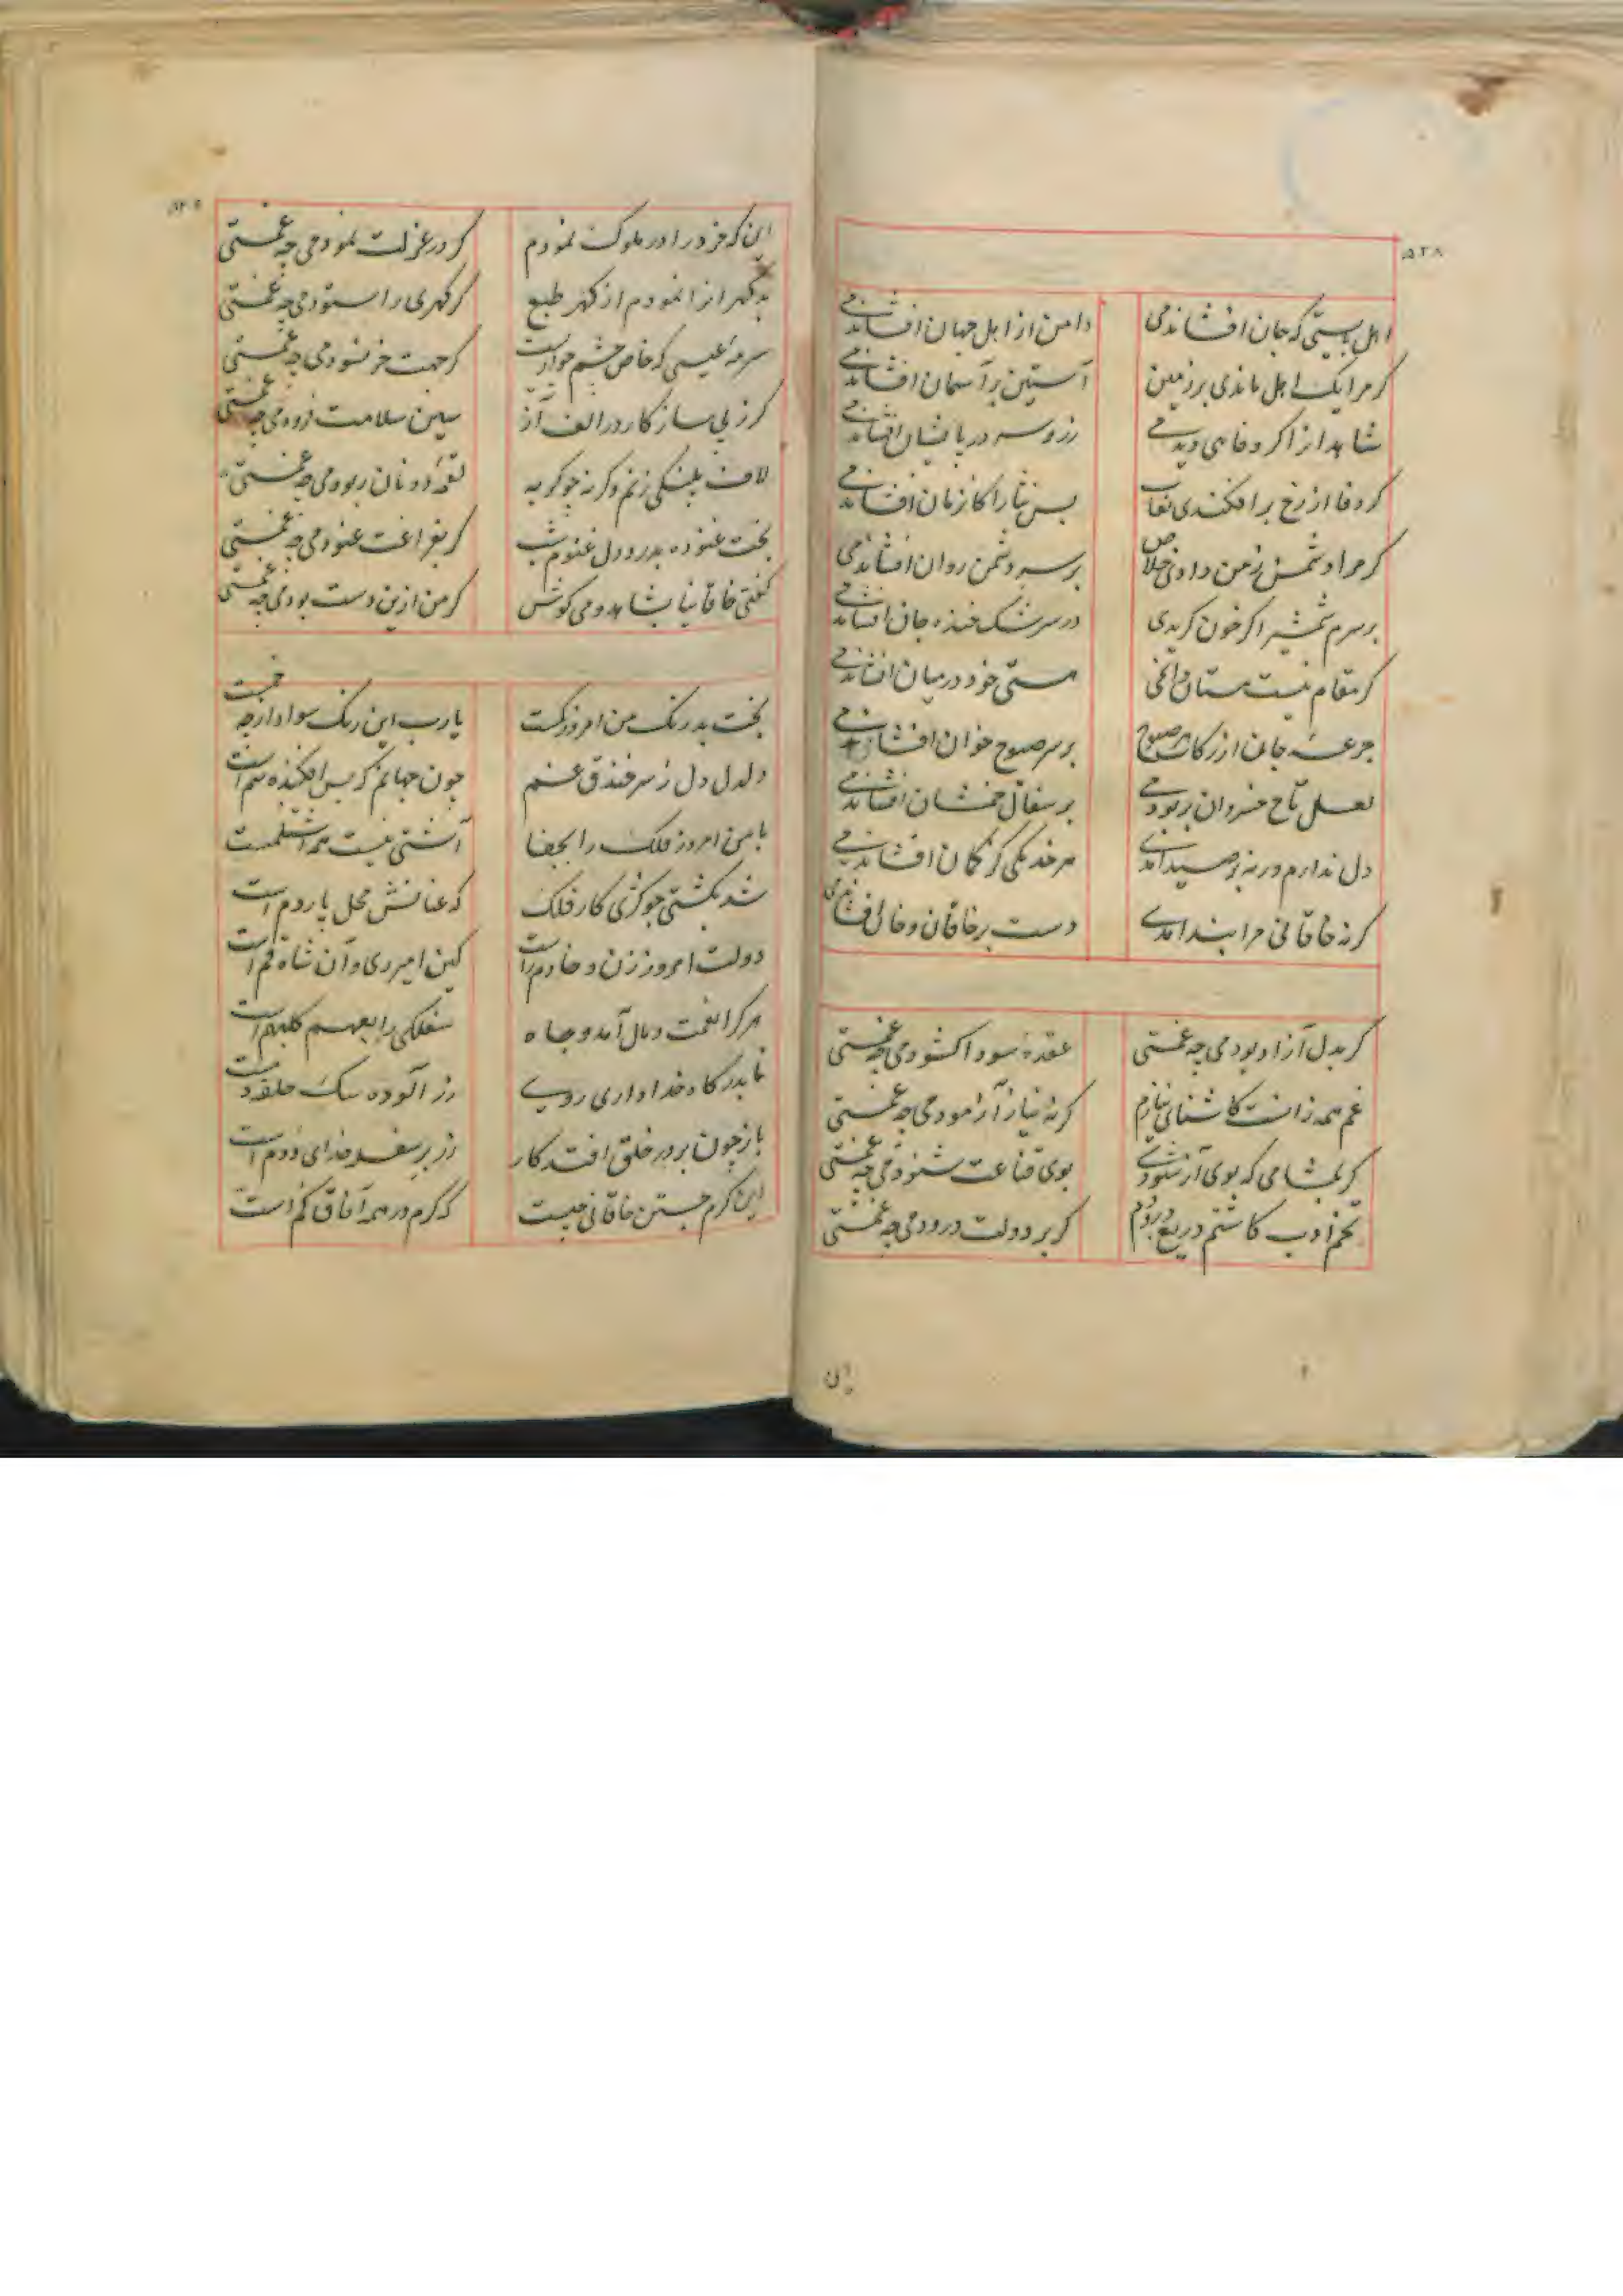 ۵۲۸
اهل بایستی که جان افشاندمی
دامن از اهل جهان افشاندمی
کر مرا یک اجل ماندی بر زمین
آستین بر آسمان افشاندمی
شاهدانرا کر وفا می دیدمی
زر و سر در پایشان افشاندمی
کر وفا از رخ برافکندی نقاب
بس نثارا کان زمان افشاندمی
کر مرا دشمن ز من دادی خلاص
بر سر دشمن روان افشاندمی
بر سرم شمشیر اکر خون کریدی
در سرشک خنده جان افشاندمی
کر مقام نیست هستان دانمی
هستی خود در میان افشاندمی
جرعه جان از زکات هر صبوح
بر سر صبوح خوان افشاندمی
لعل تاج خسروان بربودمی
بر سفال خمشان افشاندمی
دل ندارم ورنه بر صید آمدی
هر خدنکی کز کمان افشاندمی
کرنه خاقانی مرا بند آمدی
دست بر خاقان و خان افشاندمی
کر بدل آزاد بودمی چه غمستی
عقده سودا کشودمی چه غمستی
غم همه زانست کاشنای نیازم
کرنه نیاز آزمودمی چه غمستی
کر بمشامی که بوی آز شنودی
بوی قناعت شنودمی چه غمستی
تخم ادب کاشتم دریغ درودم
کر بر دولت درودمی چه غمستی
این
این که خرد را در ملوک نمودم
کر در عزلت نمودمی چه غمستی
بد کهرانرا نمودم از کهر طبع
کر کهری را ستودمی چه غمستی
سرمه عیسی که خاص چشم حواریست
کر جهت خر نسودمی چه غمستی
کرز پی ساز کار در الف آز
سین سلامت فزودمی چه غمستی
لاف پلنکی زنم وکرنه چو کربه
لقمه دونان ربودمی چه غمستی
بخت غنوده بدرد دل غنوم شب
کر بفراغت غنودمی چه غمستی
کفتی خاقانیا بشاهد و می کوش
کر من ازین دست بودمی چه غمستی
بخت بد رنک من امروز کمست
یارب این رنک سوادار چه خمست
دلدل دل ز سر خندق غم
چون جهانم که بس افکنده سم است
با من امروز فلک را بجفا
آشتی نیست همه اشتلمست
شد بکشتی چو کژی کار فلک
که عنانش محل پاردم است
دولت امروز زن و خادم راست
کین امیر ری و آن شاه قم است
هر کرا نعمت و مال آمد و جاه
سفلکی را بعهم کلبهم است
تا بدرکاه خدا داری روی
زر آلوده سک حلقه دمست
باز چون بر در خلق افتد کار
زر بر سفره خدای دوم است
این کرم جستن خاقانی چیست
که کرم در همه آفاق کم است